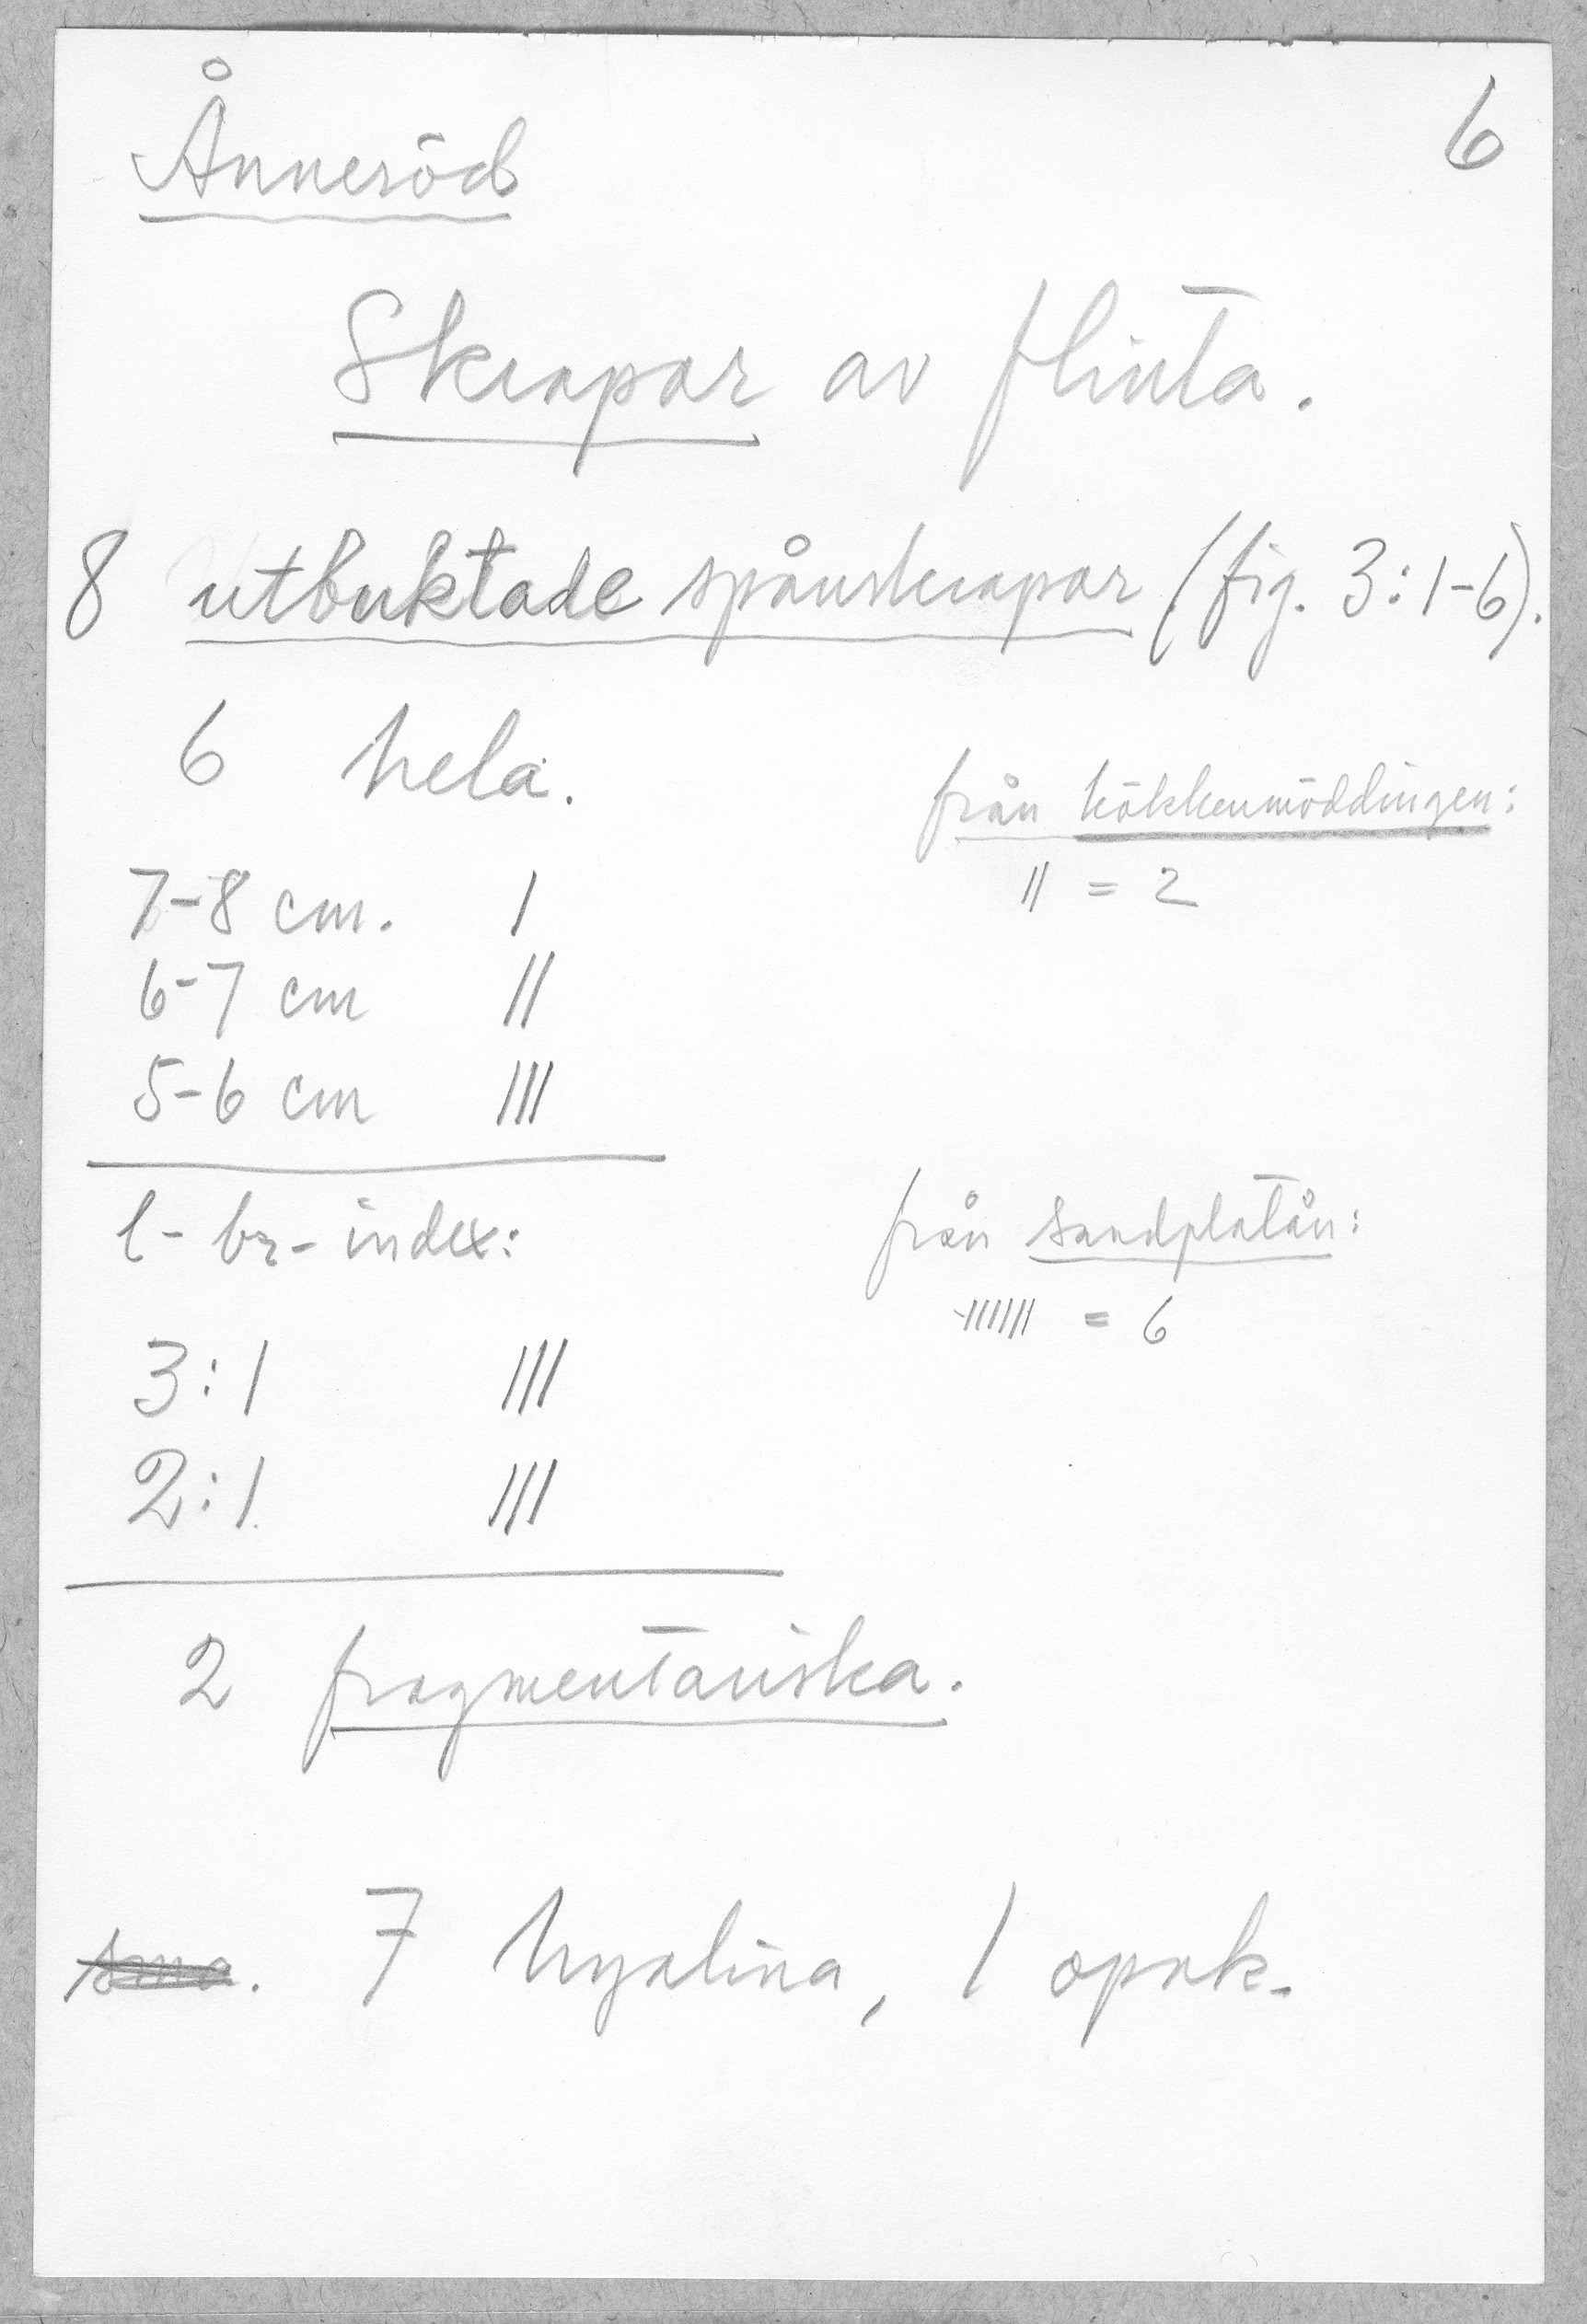 Ånneröd
6
Skrapor av flinta.
8 utbuktade spånskrapor (fig. 3:1-6).
6 hela.
från kökkenmöddingen:
|| = 2
7-8 cm. |
6-7 cm ||
5-6 cm |||
l-br-index:
från sandplatån:
|||||| = 6
3:1 |||
2:1 |||
2 fragmentariska.
7 hyalina, 1 opak.